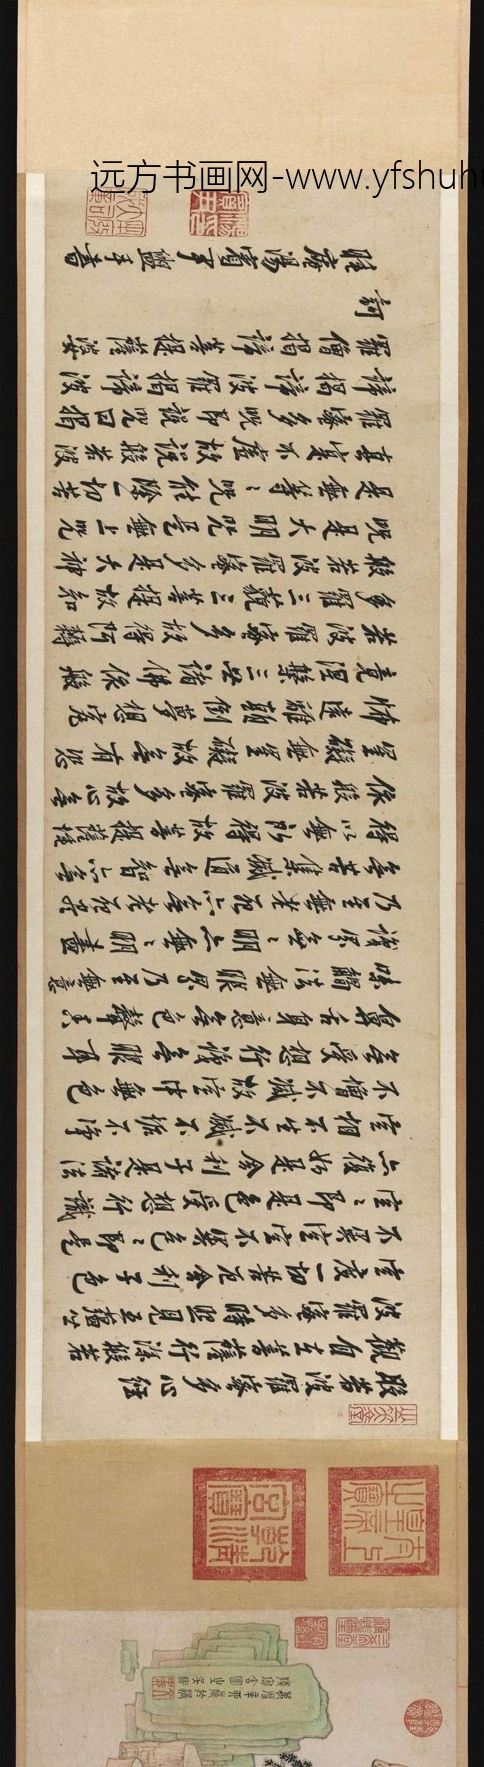 远方书画网-www.yfshuhu
般若波羅蜜多心經
觀自在菩薩行深般若
波羅蜜多時照見五蘊皆
空度一切苦厄舍利子色
不異空空不異色〻即是
空〻即是色受想行識
亦復如是舍利子是諸法
空相不生不滅不垢不淨
不增不減故空中無色
無受想行識無眼耳
鼻舌身意無色聲香
味觸法無眼界乃至無意
識界無〻明亦無〻明盡
乃至無老死亦無老死盡
無苦集滅道無智亦無
得以無所得故菩提薩埵
依般若波羅蜜多故心無
罣礙無罣礙故無有恐
怖遠離顛倒夢想究
竟涅槃三世諸佛依般
若波羅蜜多故得阿耨
多羅三藐三菩提故知
般若波羅蜜多是大神
咒是大明咒是無上咒
是無等〻咒能除一切苦
真實不虛故說般若波
羅蜜多咒即說咒曰揭
諦揭諦波羅揭諦波
羅僧揭諦菩提薩婆
訶
睡庵湯賓尹盥手書
太上皇帝之寶